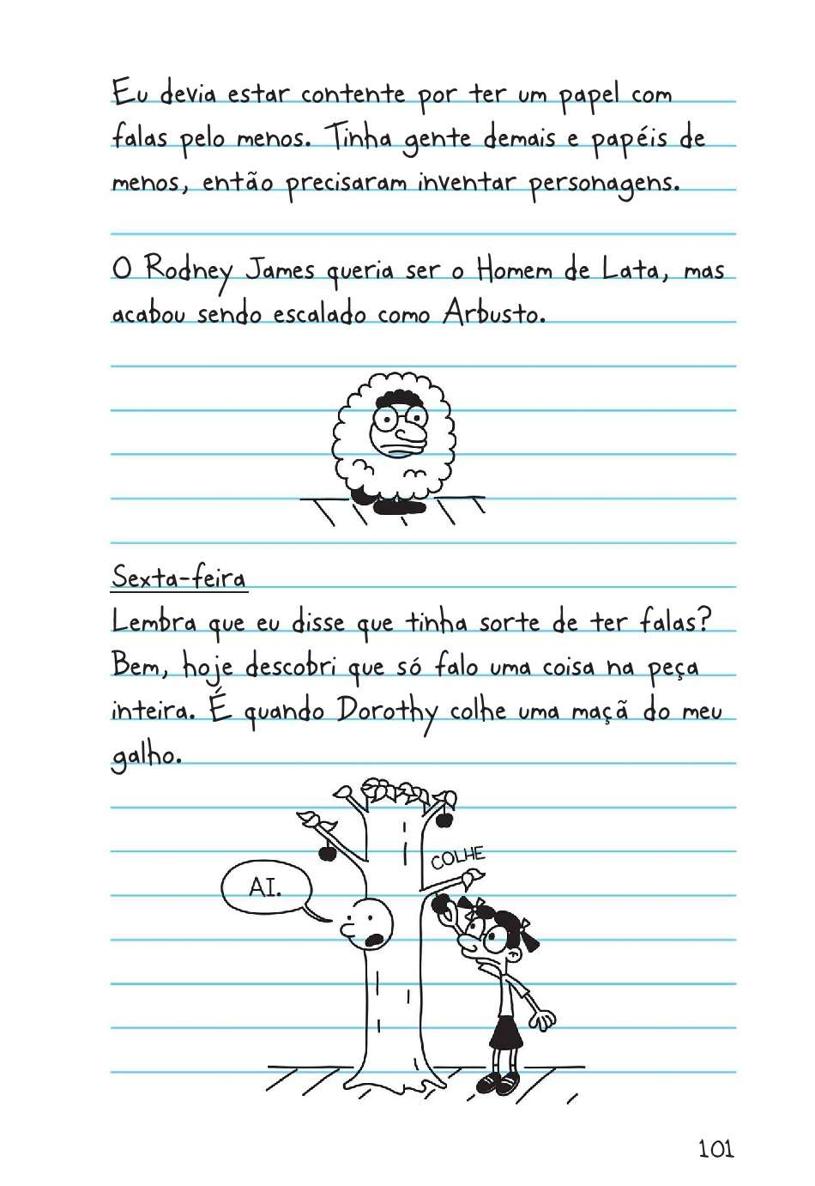 Eu devia estar contente por ter um papel com
falas pelo menos. Tinha gente demais e papéis de
menos, então precisaram inventar personagens.
O Rodney James queria ser o Homem de Lata, mas
acabou sendo escalado como Arbusto.
Sexta-feira
Lembra que eu disse que tinha sorte de ter falas?
Bem, hoje descobri que só falo uma coisa na peça
inteira. É quando Dorothy colhe uma maçã do meu
galho.
COLHE
AI.
101